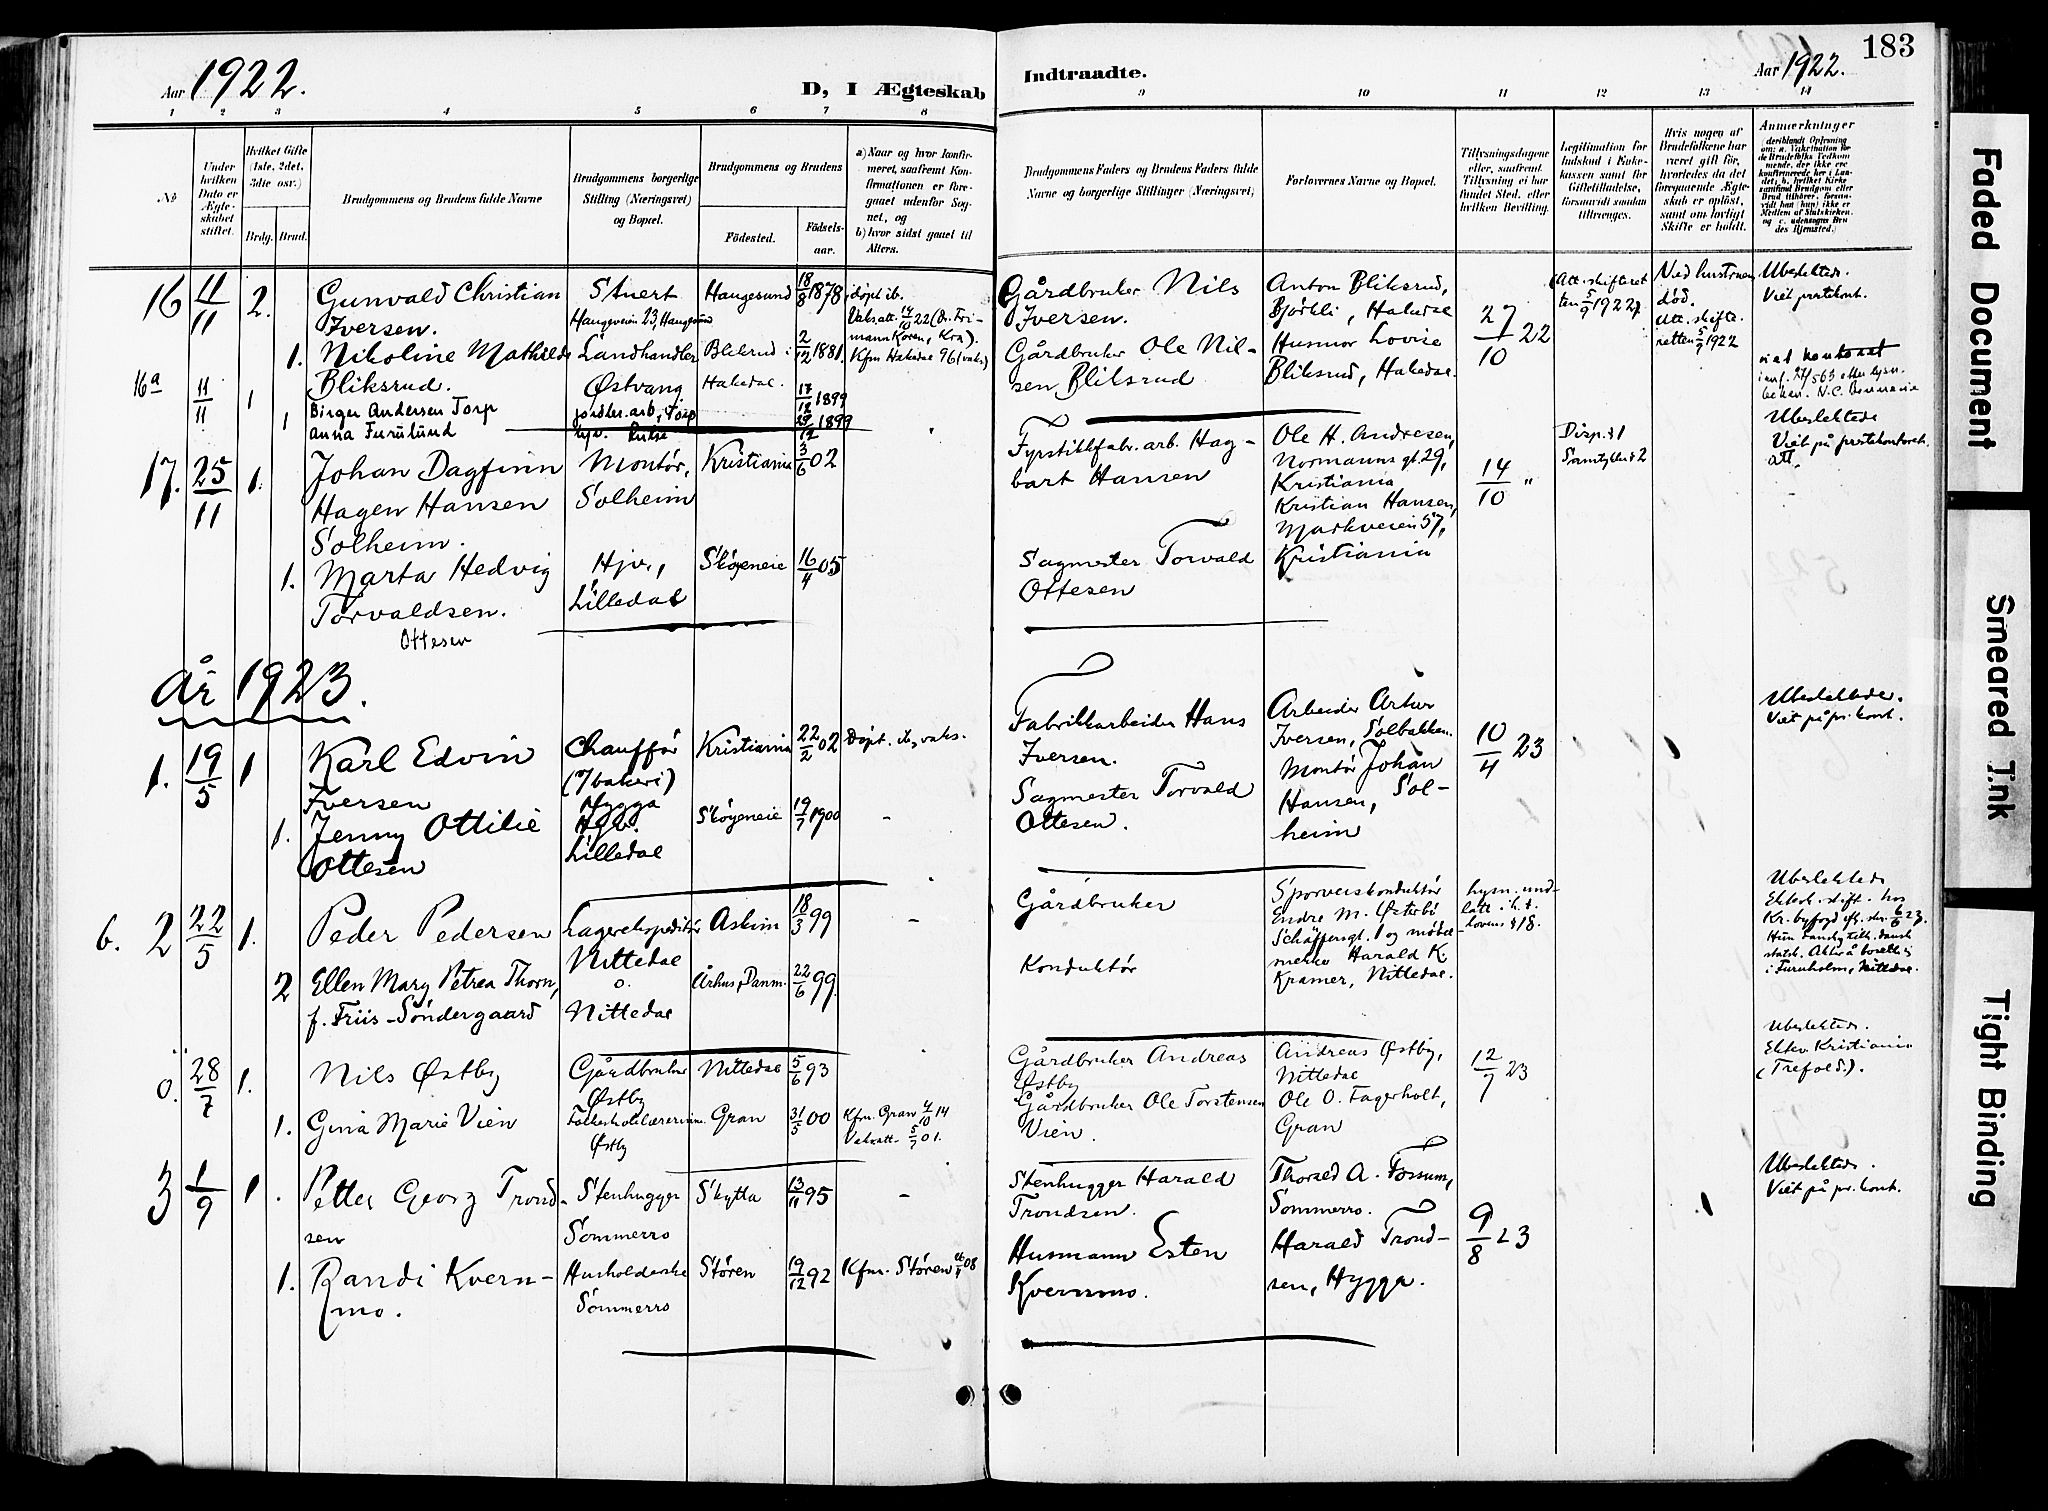 Aar 1922.
D, I Ægteskab
Indtraadte.
Aar 1922.
183
1 2 3 4 5 6 7 8 9 10 11 12 13 14
No
Under hvilken Dato er Ægteskabet stiftet.
Hvilket Gifte (1ste, 2det, 3die osv.)
Brdg. Brud.
Brudgommens og Brudens fulde Navne
Brudgommens borgerlige Stilling (Næringsvei) og Bopæl.
Brudgommens og Brudens
Fødested.
Fødselsaar.
a) Naar og hvor konfirmeret, saafremt Konfirmationen er foregaaet udenfor Sognet, og
b) hvor sidst gaaet til Alters.
Brudgommens Faders og Brudens Faders fulde Navne og borgerlige Stillinger (Næringsvei)
Forlovernes Navne og Bopæl.
Tillysningsdagene eller, saafremt Tillysning ei har fundet Sted, efter hvilken Bevilling.
Legitimation for Indskud i Enkekassen samt for Giftetilladelse, forsaavidt saadan tiltrænges.
Hvis nogen af Brudefolkene har været gift før, hvorledes da det foregaaende Ægteskab er opløst, samt om lovligt Skifte er holdt.
Anmærkninger
16 11/11 2. Gunvald Christian Iversen.
Stuert
Haugeveien 23, Haugesund
Haugesund 18/8 1878 døpt ib.
Gårdbruker Nils Iversen.
Anton Bliksrud, Bjørkli, Hakedal
27/10 22
Att. skifteret ten 5/9 1922
Ved hustruen død. Att. skifteretten 5/9 1922
Ubeslektede.
Viet prestekont.
1. Nikoline Mathilde Bliksrud.
Landhandler Østvang
Bliksrud i Hakedal 2/12 1881. Kfm Hakedal 96 (vaks.)
Gårdbruker Ole Nilsen Bliksrud
Husmor Lovise Bliksrud, Hakedal
16a 11/11 1 Birger Andersen Torp
jordbr. arb., Torp
17/12 1899
1 Anna Furulund
29/12 1899
17. 25/11 1. Johan Dagfinn Hagen Hansen Solheim.
Montør, Solheim
Kristiania 3/6 02
Fyrstikkfabr. arb. Hagbart Hansen
Ole H. Andresen, Normanns gt. 29, Kristiania
Kristian Hansen, Markveien 57, Kristiania
14/10 "
Disp. § 1
Samtykke § 2
Ubeslektede
Viet på prestekontoret.
Att.
1. Marta Hedvig Torvaldsen.
Ottesen
Hjv., Lilledal
Skøyeneie 16/4 05
Sagmester Torvald Ottesen
År 1923.
1. 19/5 1 Karl Edvin Iversen
Chauffør (i bakeri) Hygga
Kristiania 22/2 02 Døpt. ib, vaks.
Fabrikkarbeider Hans Iversen.
Arbeider Artur Iversen, Solbakken.
Montør Johan Hansen, Solheim
10/4 23
Ubeslektede.
Viet på pr. kont.
1. Jenny Ottilie Ottesen
Hjv. Lilledal
Skøyeneie 19/7 1900 -
Sagmester Torvald Ottesen.
b. 2 22/5 1. Peder Pedersen
Lagerekspeditør Nittedal
Askim 18/3 99 -
Gårdbruker
Sporveiskonduktør Endre M. Østerbø Schäffersgt. 1 og møbelsnekker Harald K. Kramer, Nittedal.
lysn. undlatt i h. t. lovens § 18.
Ubeslektede
2 Ellen Mary Petrea Thorn, f. Friis-Søndergaard
o. Nittedal
Århus, Danm. 22/6 99.
Konduktør
i Furuholm, Nittedal.
0. 28/7 1. Nils Østby
Gårdbruker Østby
Nittedal 5/6 93
Gårdbruker Andreas Østby
Andreas Østby, Nittedal
12/7 23
Ubeslektede.
Ektev. Kristiania (Trefold.).
1. Gina Marie Vien
Folkeskolelærerinne. Østby
Gran 31/5 00 Kfm. Gran 4/10 14
Vaksatt. 5/7 01.
Gårdbruker Ole Torstensen Vien.
Ole O. Fagerholt, Gran
3 1/9 1. Petter Georg Trondsen
Stenhugger Sommerro
Skytta 13/11 95 -
Stenhugger Harald Trondsen.
Thorald A. Fossum, Sommerro.
9/8 23
Ubeslektede.
Viet på pr. kont.
1. Randi Kvernmo.
Husholderske Sommerro
Støren 19/12 92 Kfm. Støren
Husmann Esten Kvernmo.
Harald Trondsen, Hygga.
Faded Document
Smeared Ink
Tight Binding